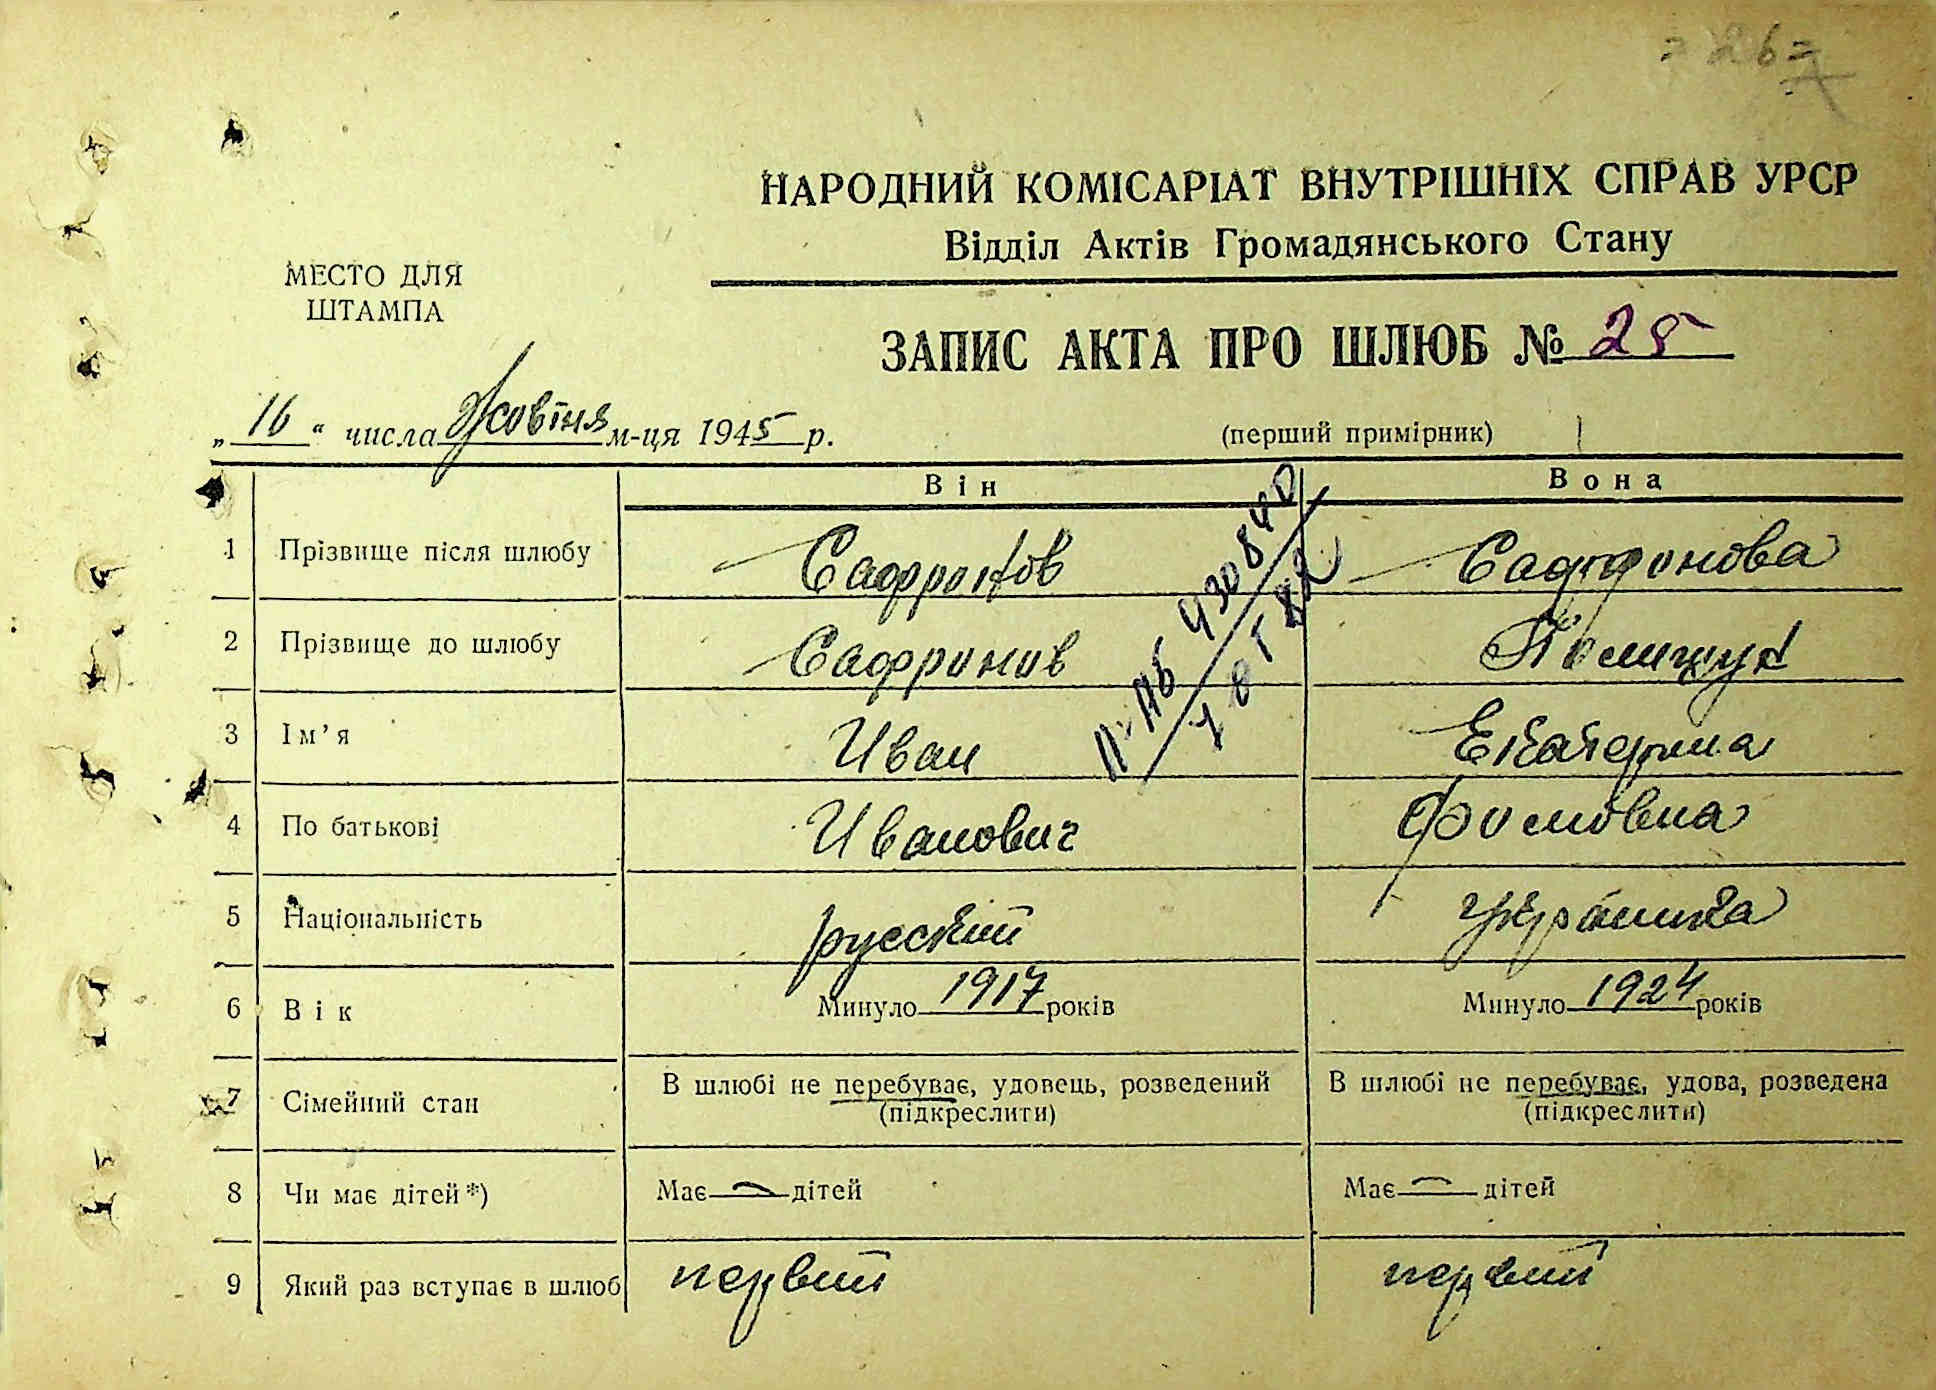 = 26 =
НАРОДНИЙ КОМІСАРІАТ ВНУТРІШНІХ СПРАВ УРСР
Відділ Актів Громадянського Стану
МЕСТО ДЛЯ
ШТАМПА
ЗАПИС АКТА ПРО ШЛЮБ № 25
„16“ числа Жовтня м-ця 1945 р. (перший примірник)
Він Вона
1 Прізвище після шлюбу Сафронов Сафронова
2 Прізвище до шлюбу Сафронов Полищук
3 Ім’я Иван Екатерина
4 По батькові Иванович Фомовна
5 Національність русский Украинка
6 Вік Минуло 1917 років Минуло 1924 років
7 Сімейний стан В шлюбі не перебуває, удовець, розведений В шлюбі не перебуває, удова, розведена
(підкреслити) (підкреслити)
8 Чи має дітей*) Має — дітей Має — дітей
9 Який раз вступає в шлюб первий первий